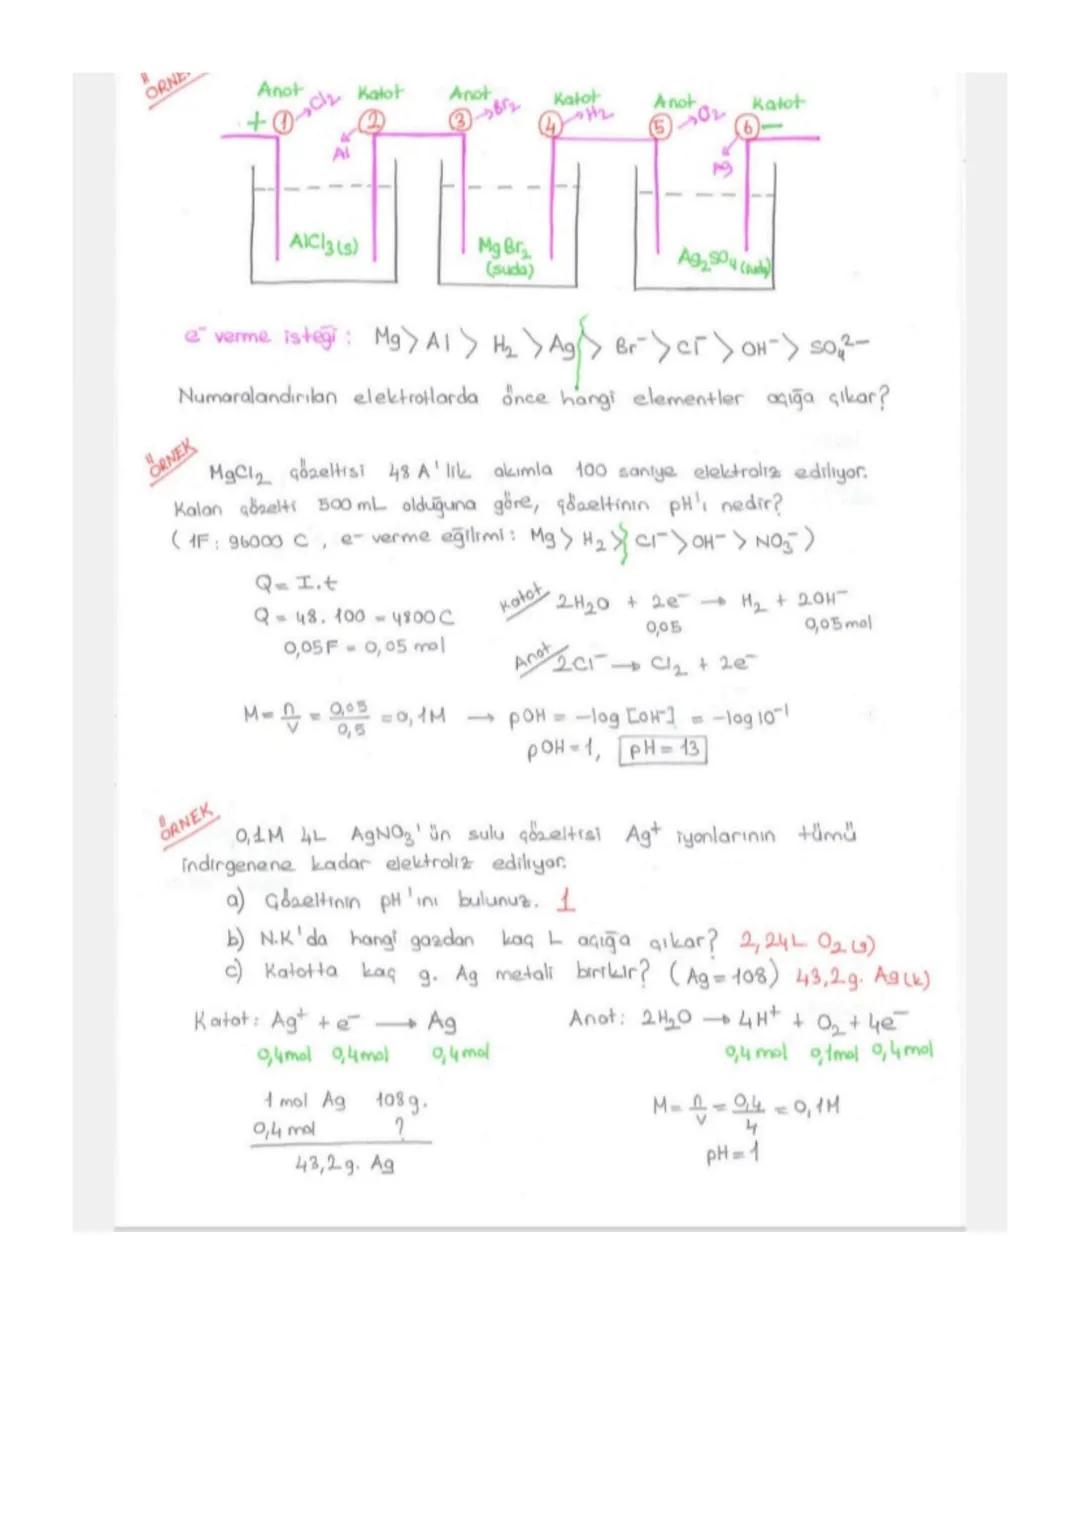 ÖRNE
Anot Katot Anot Katot Anot Katot
+ 1 →Cl2 2 3 →Br2 4 →H2 5 →O2 6 −
Al Ag
AlCl3(s) MgBr2 (suda) Ag2SO4 (suda)
e⁻ verme isteği : Mg > Al > H2 > Ag > Br⁻ > Cl⁻ > OH⁻ > SO4²⁻
Numaralandırılan elektrotlarda önce hangi elementler açığa çıkar?
ÖRNEK
MgCl2 çözeltisi 48 A'lik akımla 100 saniye elektroliz ediliyor.
Kalan çözelti 500 mL olduğuna göre, çözeltinin pH'ı nedir?
( 1F : 96000 C , e- verme eğilimi : Mg > H2 > Cl⁻ > OH⁻ > NO3⁻ )
Q = I.t
Q = 48. 100 = 4800C
0,05F = 0,05 mol
Katot 2H2O + 2e⁻ → H2 + 2OH⁻
0,05 0,05mol
Anot 2Cl⁻ → Cl2 + 2e⁻
M = n/V = 0,05/0,5 = 0,1M → pOH = -log [OH⁻] = -log 10⁻¹
pOH = 1, pH = 13
ÖRNEK
0,1M 4L AgNO3'ün sulu çözeltisi Ag⁺ iyonlarının tümü
indirgenene kadar elektroliz ediliyor.
a) Çözeltinin pH'ını bulunuz. 1
b) N.K'da hangi gazdan kaç L açığa çıkar? 2,24L O2(g)
c) Katotta kaç g. Ag metali birikir? (Ag = 108) 43,2g. Ag(k)
Katot: Ag⁺ + e⁻ → Ag
0,4mol 0,4mol 0,4mol
Anot: 2H2O → 4H⁺ + O2 + 4e⁻
0,4 mol 0,1mol 0,4mol
1 mol Ag 108g.
0,4 mol ?
43,2g. Ag
M = n/V = 0,4/4 = 0,1M
pH = 1